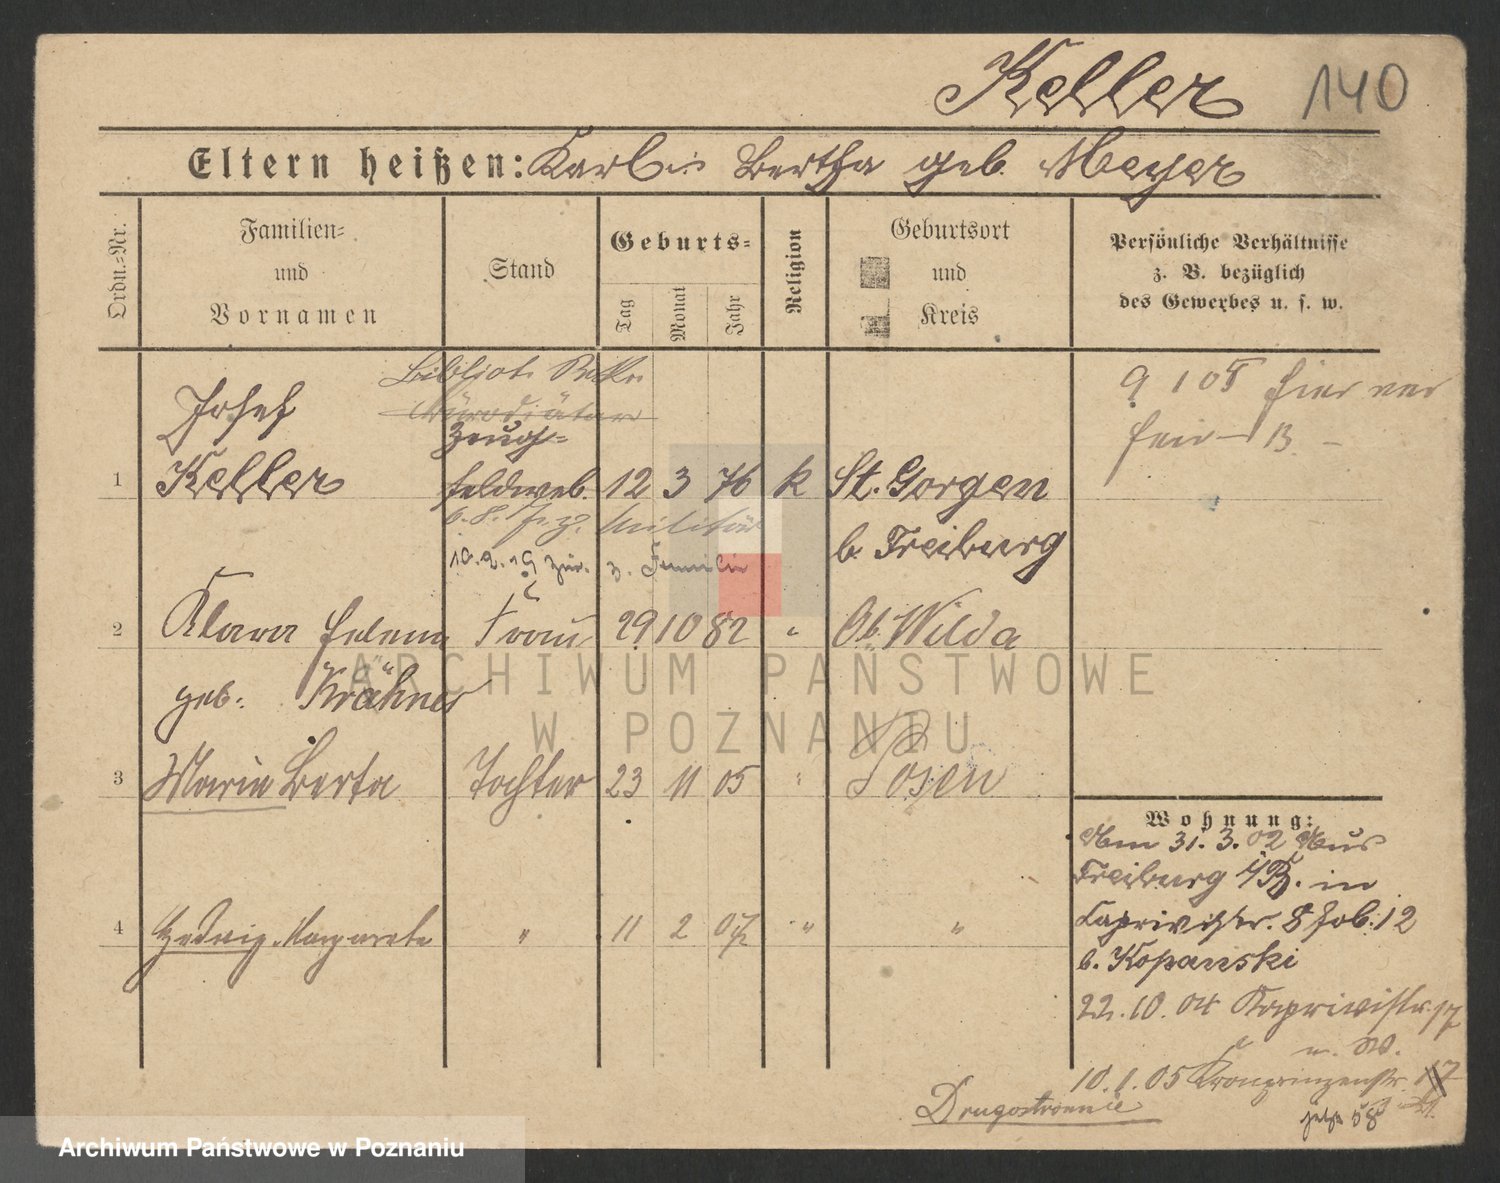 Keller 140
Eltern heißen: Karl u. Bertha geb. Meyer
Ordn.-Nr.
Familien-
und
Vornamen
Stand
Geburts-
Tag
Monat
Jahr
Religion
Geburtsort
und
Kreis
Persönliche Verhältnisse
z. B. bezüglich
des Gewerbes u. s. w.
Josef
Zeug-
1 Keller feldweb. 12 3 76 k St. Gorgen
b. Freiburg
Militär
10.2.19 zur. z. Familie
9 1 05 hier
2 Klara Helene Frau 29 10 82 " Ob. Wilda
geb. Krähner
3 Maria Berta Tochter 23 11 05 " Posen
4 Hedwig Margarete " 11 2 07 " "
Wohnung:
Am 31. 3. 02 Aus
Freiburg i/B. in
Caprivistr. 8 Hob. 12
b. Kopanski
22. 10. 04 Kaprivistr. 17
u. W.
10. 1. 05 Kronprinzenstr.
Drugostronnie
58
ARCHIWUM PAŃSTWOWE
W POZNANIU
Archiwum Państwowe w Poznaniu